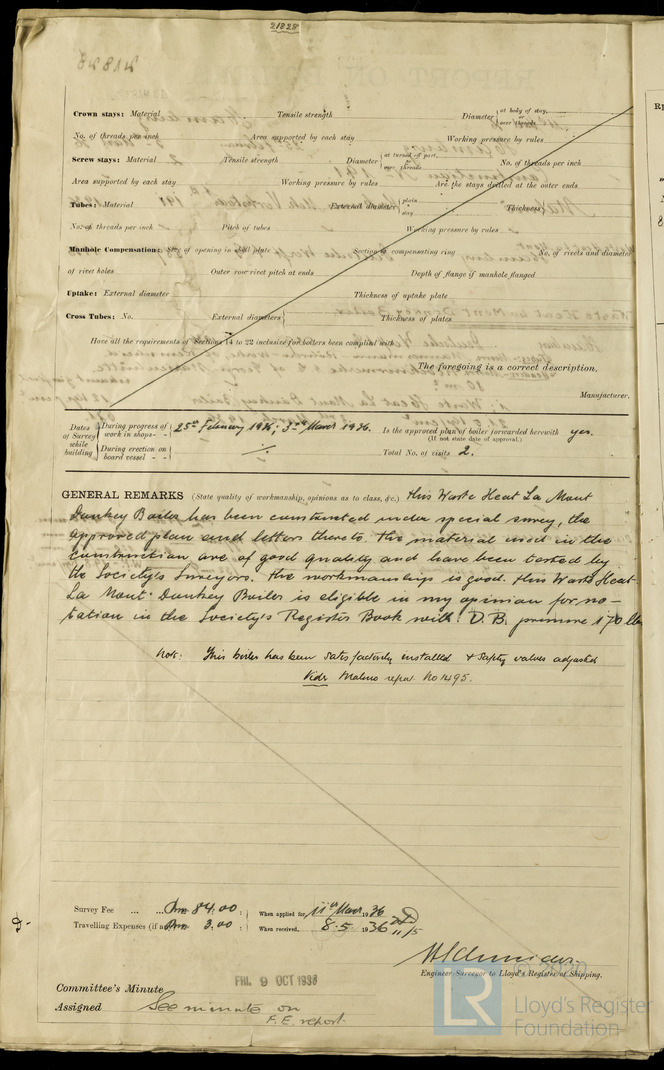 21828
Crown stays: Material Tensile strength Diameter at body of stay, or over threads
No. of threads per inch Area supported by each stay Working pressure by rules
Screw stays: Material Tensile strength Diameter at turned off part, or over threads No. of threads per inch
Area supported by each stay Working pressure by rules Are the stays drilled at the outer ends
Tubes: Material External diameter plain stay Thickness
No. of threads per inch Pitch of tubes Working pressure by rules
Manhole Compensation: Size of opening in shell plate Section of compensating ring No. of rivets and diameter
of rivet holes Outer row rivet pitch at ends Depth of flange if manhole flanged
Uptake: External diameter Thickness of uptake plate
Cross Tubes: No. External diameters Thickness of plates
Have all the requirements of Sections 14 to 22 inclusive for boilers been complied with
The foregoing is a correct description,
Manufacturer.
Dates of Survey while building
During progress of work in shops - - 25th February 1936; 3rd March 1936.
During erection on board vessel - -
Is the approved plan of boiler forwarded herewith yes.
(If not state date of approval.)
Total No. of visits 2.
GENERAL REMARKS (State quality of workmanship, opinions as to class, &c.) This Waste Heat La Mont
Donkey Boiler has been constructed under special survey, the
approved plan and letters thereto. The material used in the
construction are of good quality and have been tested by
the Society's Surveyors. The workmanship is good. This Waste Heat
La Mont Donkey Boiler is eligible in my opinion for no-
tation in the Society's Register Book with: D.B. pressure 170 lbs
Note: This boiler has been satisfactorily installed & safety valves adjusted
Vide Malmo report No 1495.
Survey Fee ... ... Rm 84.00 : When applied for 11th March 1936
Travelling Expenses (if Rm 3.00 : When received, 8.5 1936 11/5
Engineer Surveyor to Lloyd's Register of Shipping.
Committee's Minute FRI. 9 OCT 1936
Assigned See minute on
F.E. report.
LR Lloyd's Register
Foundation